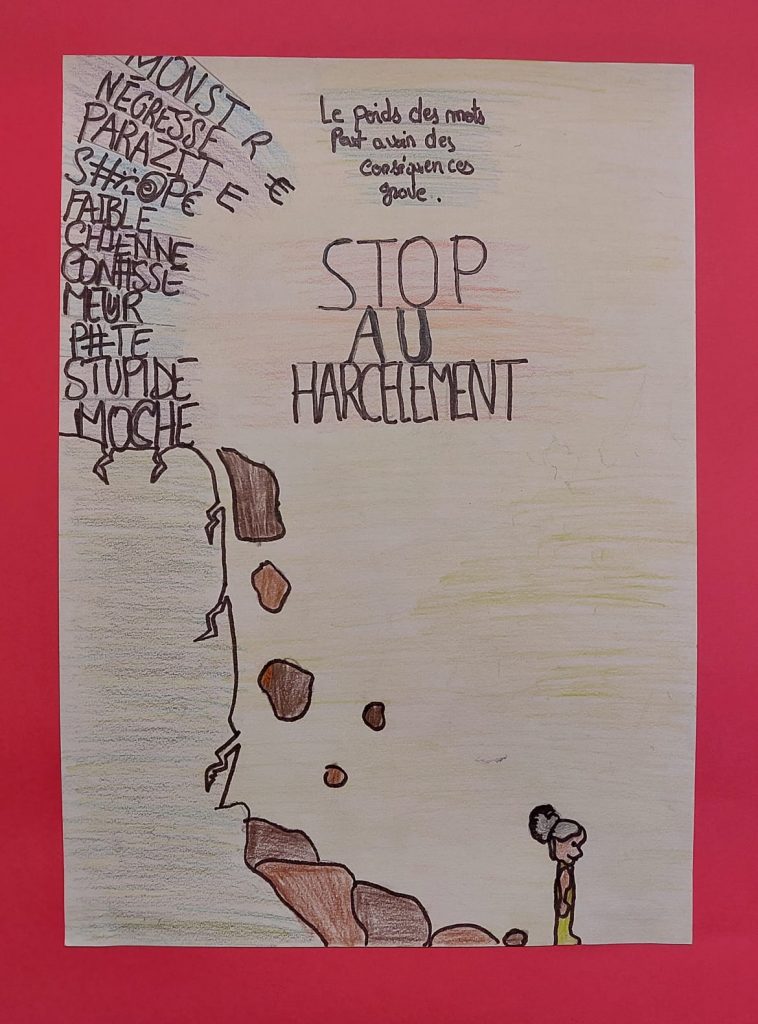 MONSTR€
NÉGRESSE
PARAZITE
FAIBLE
CHIENNE
MEUR
P#TE
STUPIDE
MOCHE
Le poids des mots
Peut avoir des
conséquences
grave.
STOP
AU
HARCELEMENT